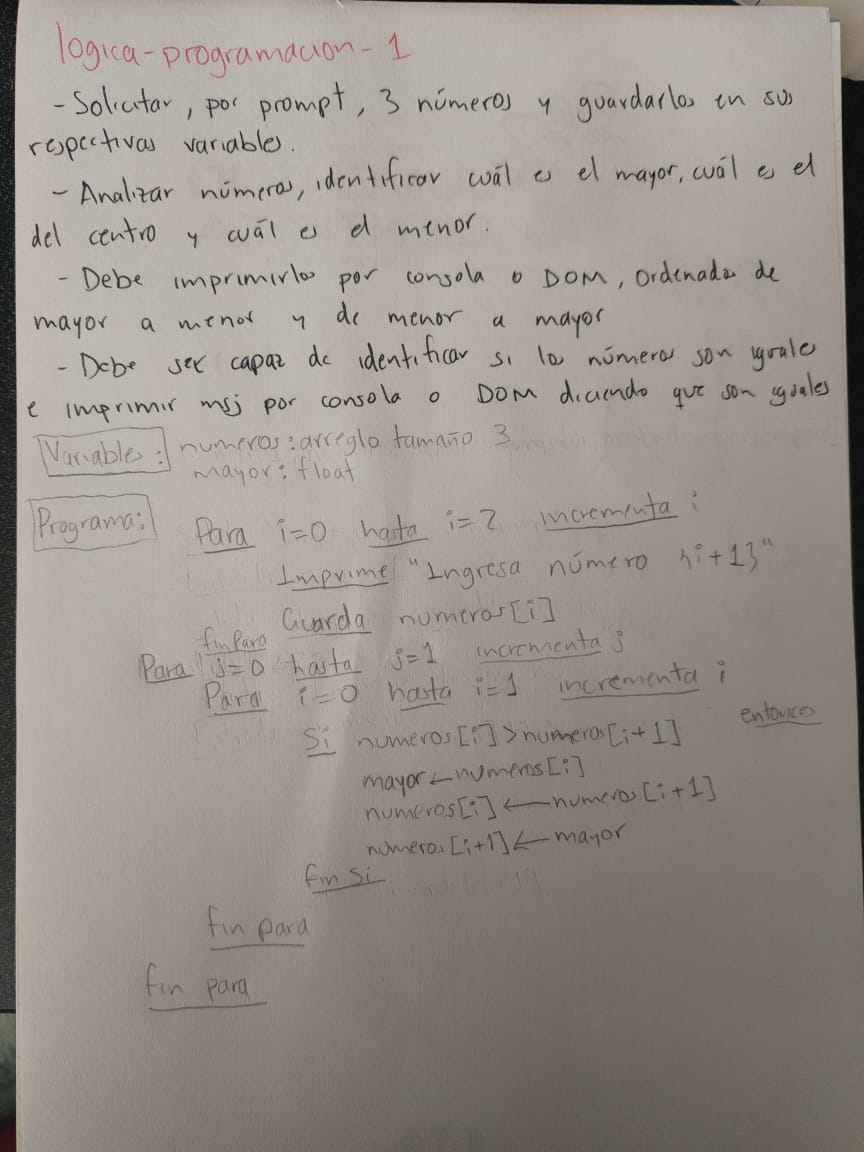 logica-programacion-1
- Solicitar, por prompt, 3 números y guardarlos en sus
respectivas variables.
- Analizar números, identificar cuál es el mayor, cuál es el
del centro y cuál es el menor.
- Debe imprimirlos por consola o DOM, ordenados de
mayor a menor y de menor a mayor
- Debe ser capaz de identificar si los números son iguales
e imprimir msj por consola o DOM diciendo que son iguales
Variables: numeros: arreglo tamaño 3
mayor: float
Programa: Para i=0 hasta i=2 incrementa i
Imprime "Ingresa número {i+1}"
Guarda numeros[i]
fin Para
Para j=0 hasta j=1 incrementa j
Para i=0 hasta i=1 incrementa i
Si numeros[i]>numeros[i+1] entonces
mayor ← numeros[i]
numeros[i] ← numeros[i+1]
numeros[i+1] ← mayor
fin Si
fin para
fin para